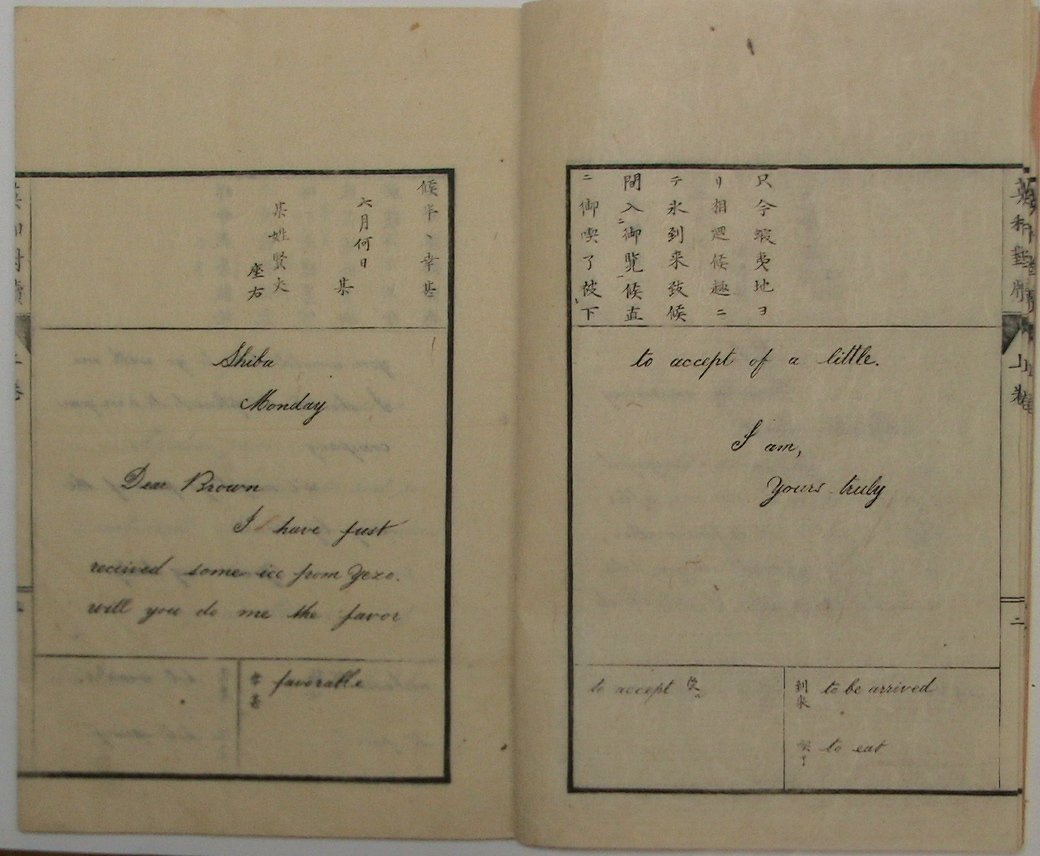 候半ヽ幸甚
六月何日
某
某姓賢夫
座右
Shiba
Monday
Dear Brown
I have just
received some ice from Yezo.
will you do me the favor
幸甚 favorable
只今蝦夷地ヨ
リ相廻候趣ニ
テ氷到来致候
間入御覧候直
ニ御喫了被下
to accept of a little.
I am,
Yours truly
到来 to be arrived
喫了 to eat
to accept
二